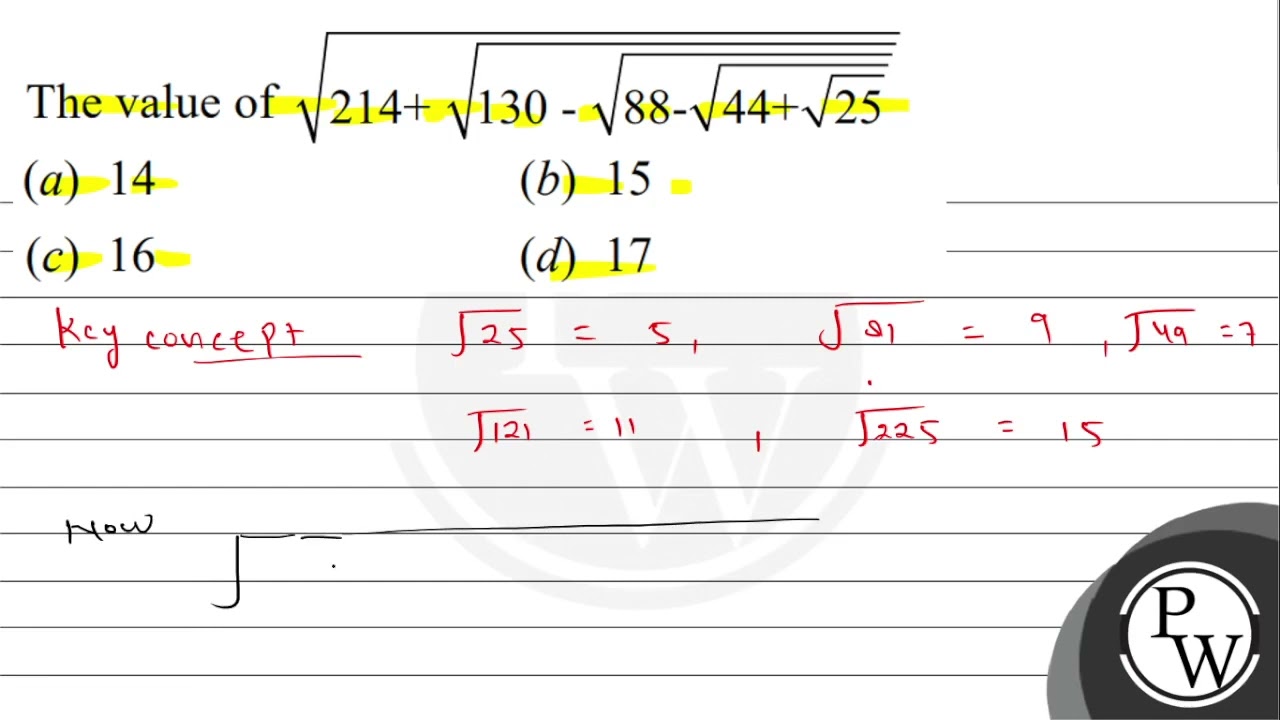 The value of √214+ √130 - √88-√44+√25
(a) 14 (b) 15
(c) 16 (d) 17
Key concept √25 = 5, √81 = 9 , √49 = 7
√121 = 11 , √225 = 15
Now √
P
W